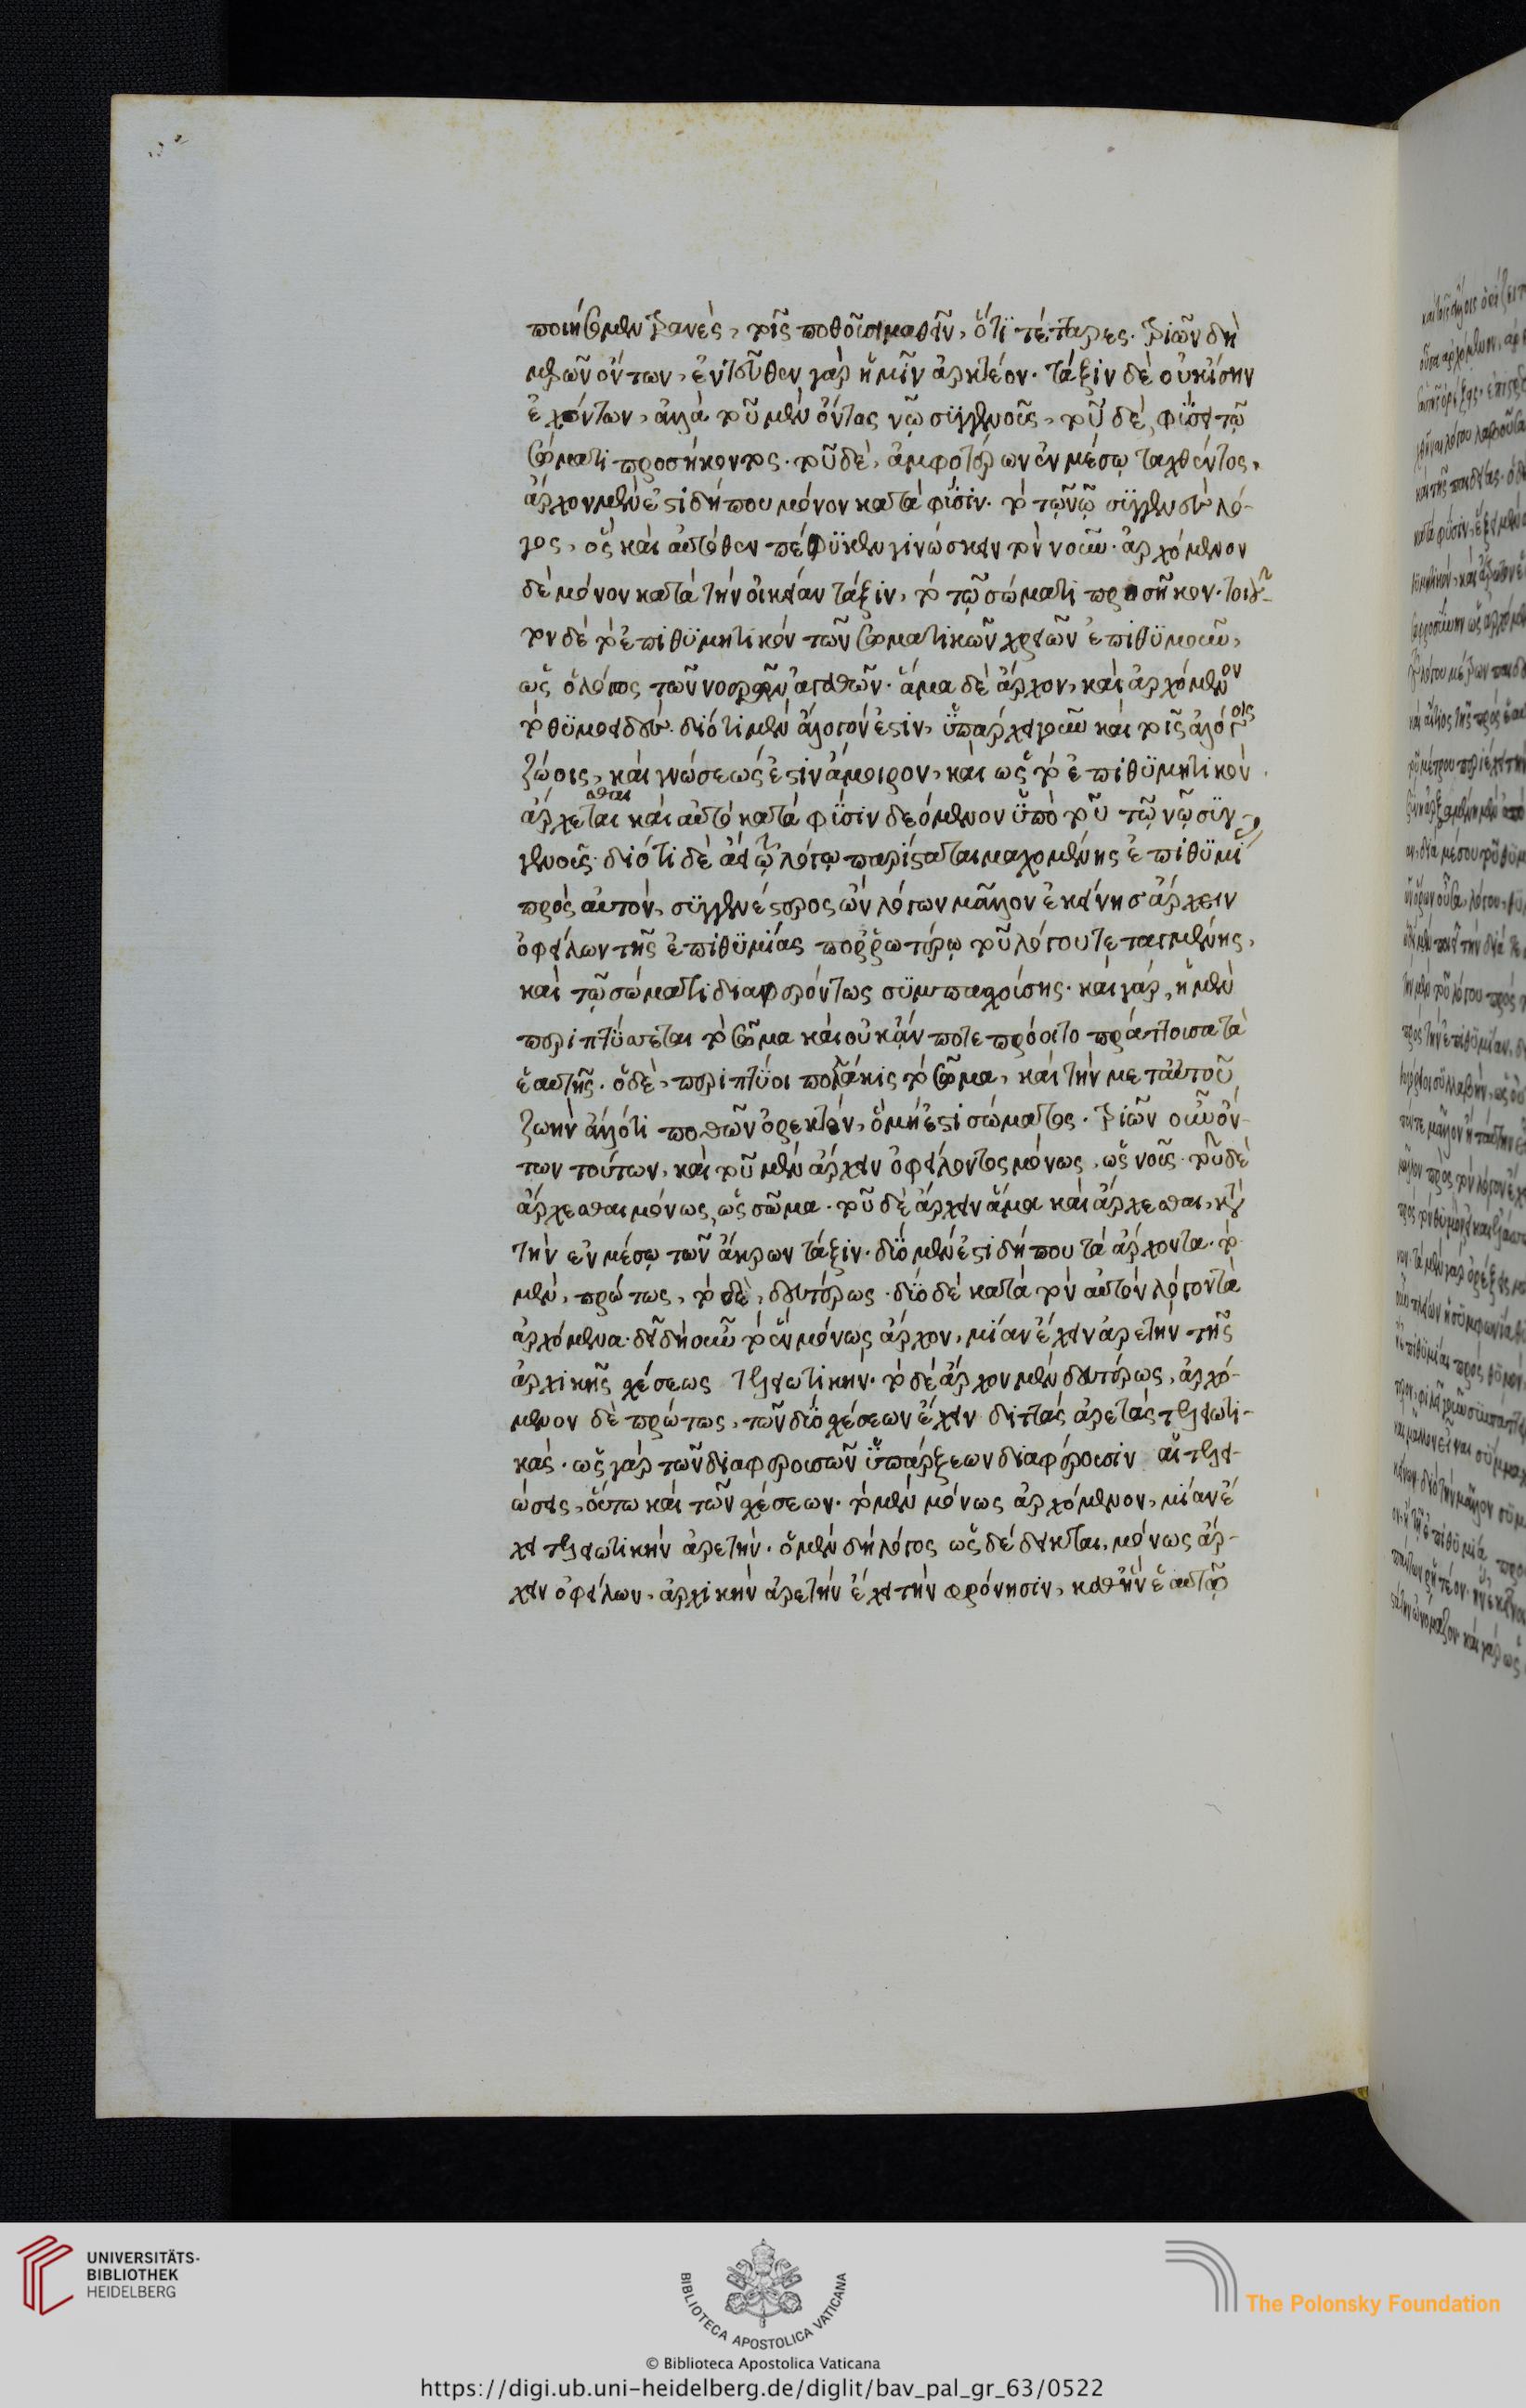 ποιήσωμεν τρανές, τοῖς ποθοῦσι μαθεῖν, ὅτι τέτταρες. τριῶν δὴ
μερῶν ὄντων, ἐντεῦθεν γὰρ ἡμῖν ἀρκτέον. τάξιν δὲ οὐκ ἴσην
ἐχόντων, ἀλλὰ τοῦ μὲν ὄντος νῷ συγγενοῦς, τοῦ δὲ, φύσει τῷ
σώματι προσήκοντος. τοῦ δὲ, ἀμφοτέρων ἐν μέσῳ ταχθέντος,
ἄρχον μὲν ἐστι δήπου μόνον κατὰ φύσιν. τὸ τῷ νῷ συγγενὲς λό-
γος, ὃς καὶ αὐτόθεν πέφυκεν γινώσκειν τὸν νοῦν. ἀρχόμενον
δὲ μόνον κατὰ τὴν οἰκείαν τάξιν, τὸ τῷ σώματι προσῆκον. τοιοῦ-
τον δὲ τὸ ἐπιθυμητικὸν τῶν σωματικῶν χρειῶν ἐπιθυμοῦν,
ὡς ὁ λόγος τῶν νοερῶν ἀγαθῶν. ἅμα δὲ ἄρχον, καὶ ἀρχόμενον
τὸ θυμοειδές. διότι μὲν ἄλογόν ἐστιν, ὑπάρχει γοῦν καὶ τοῖς ἀλόγοις
ζώοις, καὶ γνώσεώς ἐστιν ἄμοιρον, καὶ ὡς τὸ ἐπιθυμητικὸν
ἄρχεται σθαι καὶ αὐτὸ κατὰ φύσιν δεόμενον ὑπὸ τοῦ τῷ νῷ συγ-
γενοῦς. διότι δὲ ἀεὶ τῷ λόγῳ παρίσταται μαχομένης ἐπιθυμί
πρὸς αὐτὸν, συγγενέστερος ὢν λόγων μᾶλλον ἐκείνης ἄρχειν
ὀφείλων τῆς ἐπιθυμίας πορρωτέρω τοῦ λόγου τεταγμένης,
καὶ τῷ σώματι διαφερόντως συμπαθούσης. καὶ γὰρ, ἡ μὲν
περιπτύσσεται τὸ σῶμα καὶ οὐκ ἄν ποτε πρόοιτο πράττουσα τὰ
ἑαυτῆς. ὁ δὲ, περιπτύοι πολλάκις τὸ σῶμα, καὶ τὴν μετ' αὐτοῦ
ζωὴν ἄλλό τι ποθῶν ὀρεκτὸν, ὃ μή ἐστι σώματος. τριῶν οὖν ὄν-
των τούτων, καὶ τοῦ μὲν ἄρχειν ὀφείλοντος μόνως, ὡς νοῦς. τοῦ δὲ
ἄρχεσθαι μόνως, ὡς σῶμα. τοῦ δὲ ἄρχειν ἅμα καὶ ἄρχεσθαι, κατὰ
τὴν ἐν μέσῳ τῶν ἄκρων τάξιν. δύο μὲν ἐστι δήπου τὰ ἄρχοντα. τὸ
μὲν, πρώτως, τὸ δὲ, δευτέρως. δύο δὲ κατὰ τὸν αὐτὸν λόγον τὰ
ἀρχόμενα. δεῖ δὴ οὖν τὸ ἓν μόνως ἄρχον, μίαν ἔχειν ἀρετὴν τῆς
ἀρχικῆς σχέσεως τελειωτικήν. τὸ δὲ ἄρχον μὲν δευτέρως, ἀρχό-
μενον δὲ πρώτως, τῶν δύο σχέσεων ἔχειν διττὰς ἀρετὰς τελειωτι-
κάς. ὡς γὰρ τῶν διαφερουσῶν ὑπάρξεων διαφέρουσιν αἱ τελει-
ώσεις, οὕτω καὶ τῶν σχέσεων. τὸ μὲν μόνως ἀρχόμενον, μίαν ἔ
χει τελειωτικὴν ἀρετήν. ὁ μὲν δὴ λόγος ὡς δέδεικται, μόνως ἄρ-
χειν ὀφείλων, ἀρχικὴν ἀρετὴν ἔχει τὴν φρόνησιν, καθ' ἣν ἑαυτῷ
UNIVERSITÄTS-
BIBLIOTHEK
HEIDELBERG
BIBLIOTECA APOSTOLICA VATICANA
The Polonsky Foundation
© Biblioteca Apostolica Vaticana
https://digi.ub.uni-heidelberg.de/diglit/bav_pal_gr_63/0522